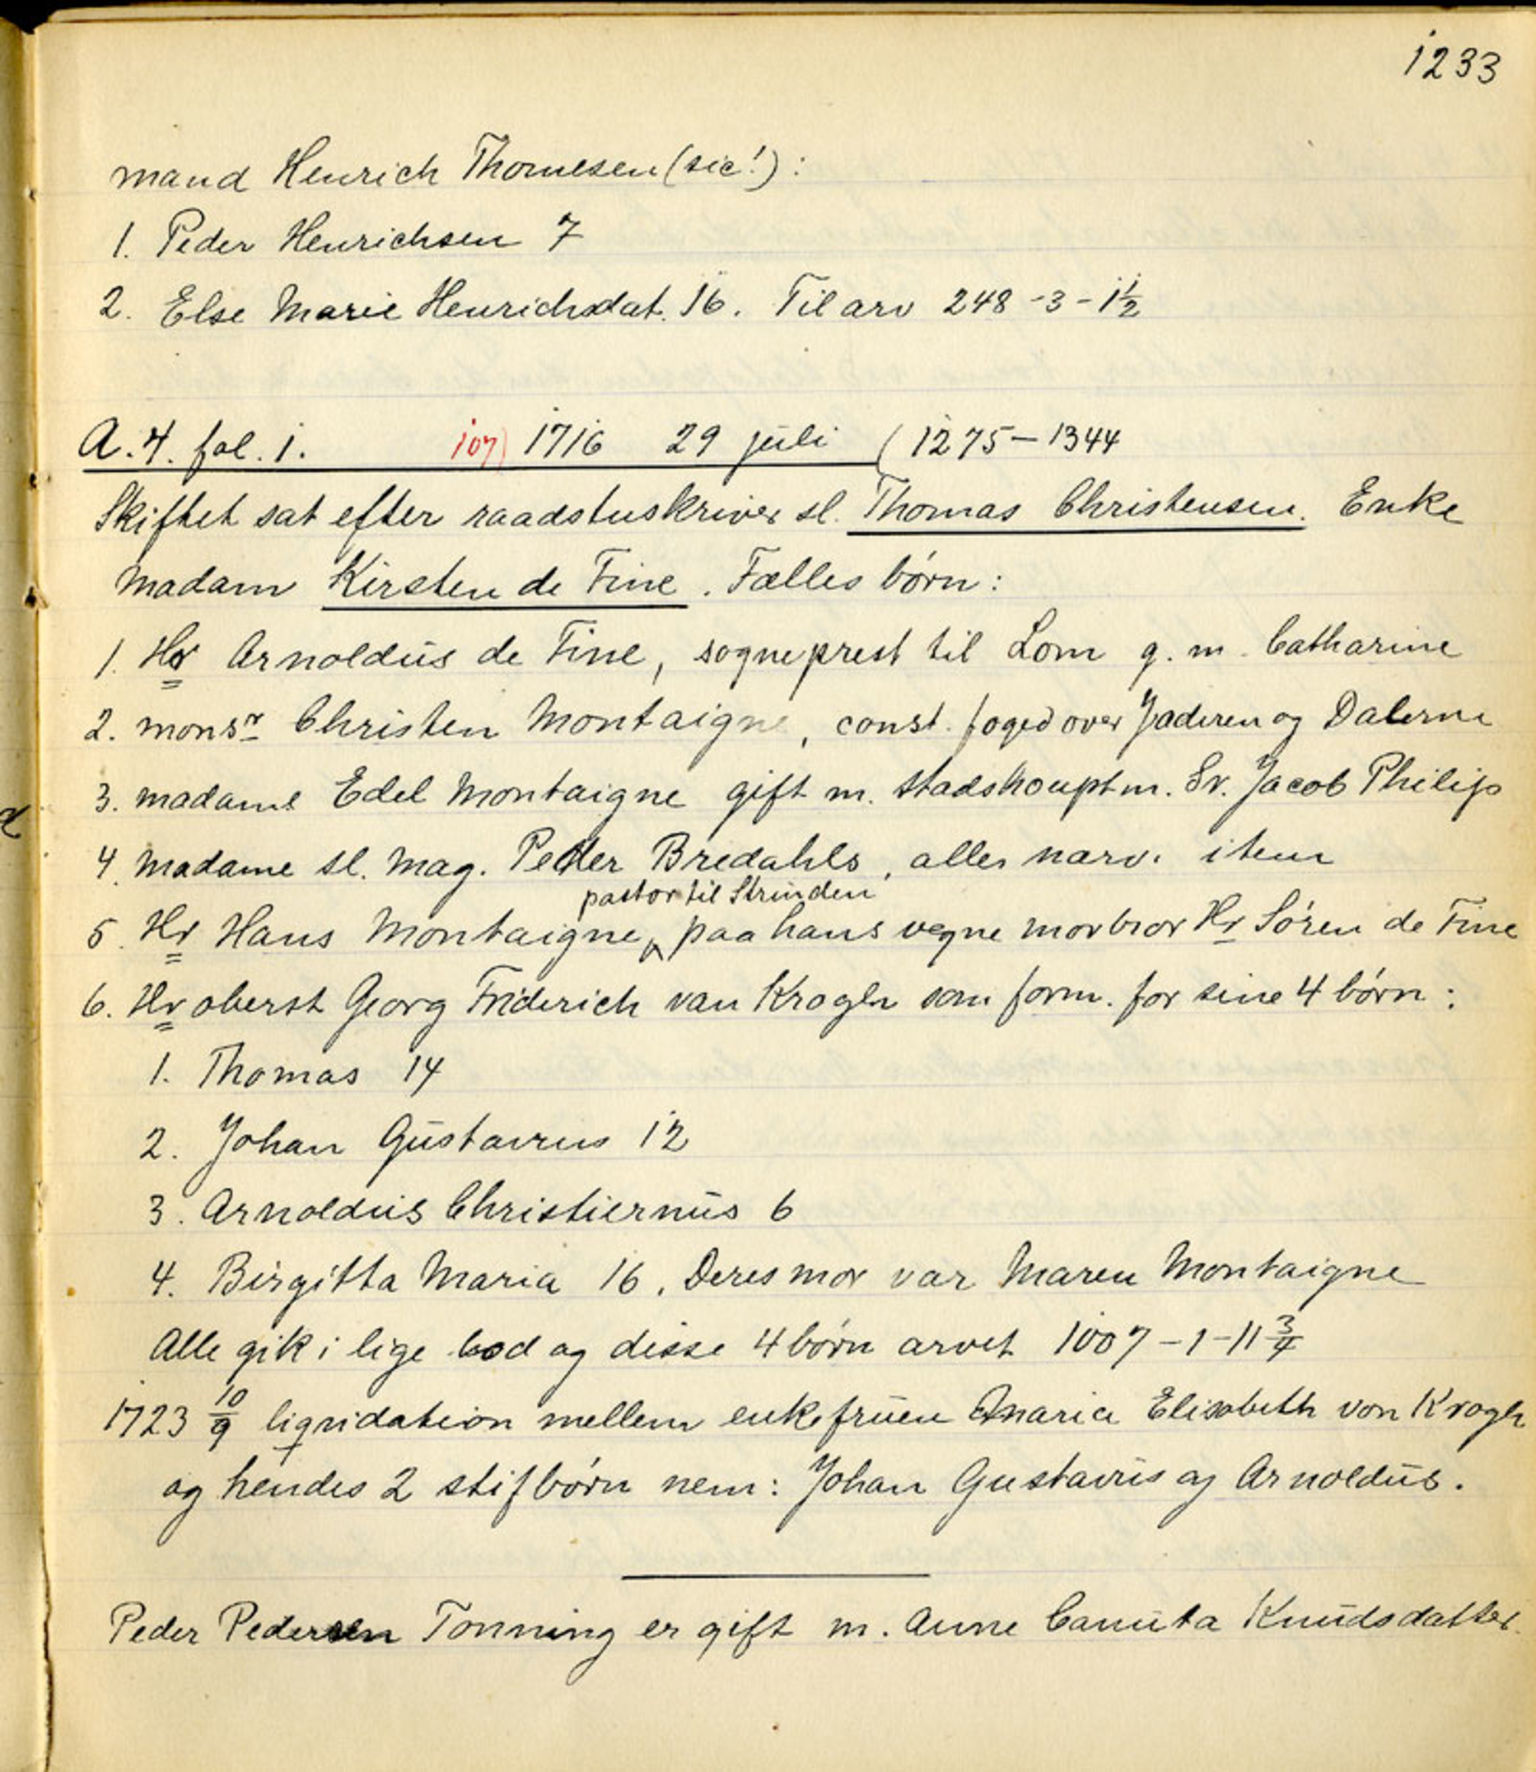 1233
mand Henrich Thomesen (sic!):
1. Peder Henrichsen 7
2. Else Marie Henrichsdat. 16. Til arv 248-3-1½
A.4. fol. 1. 107) 1716 29 juli (1275-1344
Skiftet sat efter raadstuskriver sl. Thomas Christensen. Enke
Madam Kirsten de Fine. Fælles børn:
1. Hr Arnoldus de Fine, sogneprest til Lom g. m. Catharine
2. monsr Christen Montaigne, const. foged over Jæderen og Dalerne
3. madame Edel Montaigne gift m. stadshouptm. Sr. Jacob Philip
4. Madame sl. Mag. Peder Bredahls, alle nærv. item
pastor til Strinden
5. Hr Hans Montaigne, paa hans vegne morbror Hr Søren de Fine
6. Hr oberst Georg Friderich van Krogh som form. for sine 4 børn:
1. Thomas 14
2. Johan Gustavus 12
3. Arnoldus Christiernus 6
4. Birgitta Maria 16. Deres mor var Maren Montaigne
Alle gik i lige lod og disse 4 børn arvet 1007-1-11¾
1723 10/9 liqvidation mellem enkefruen Anaria Elisabeth von Krogh
og hendes 2 stifbørn nem: Johan Gustavus og Arnoldus.
Peder Pedersen Tonning er gift m. Anne Canuta Knudsdatter.